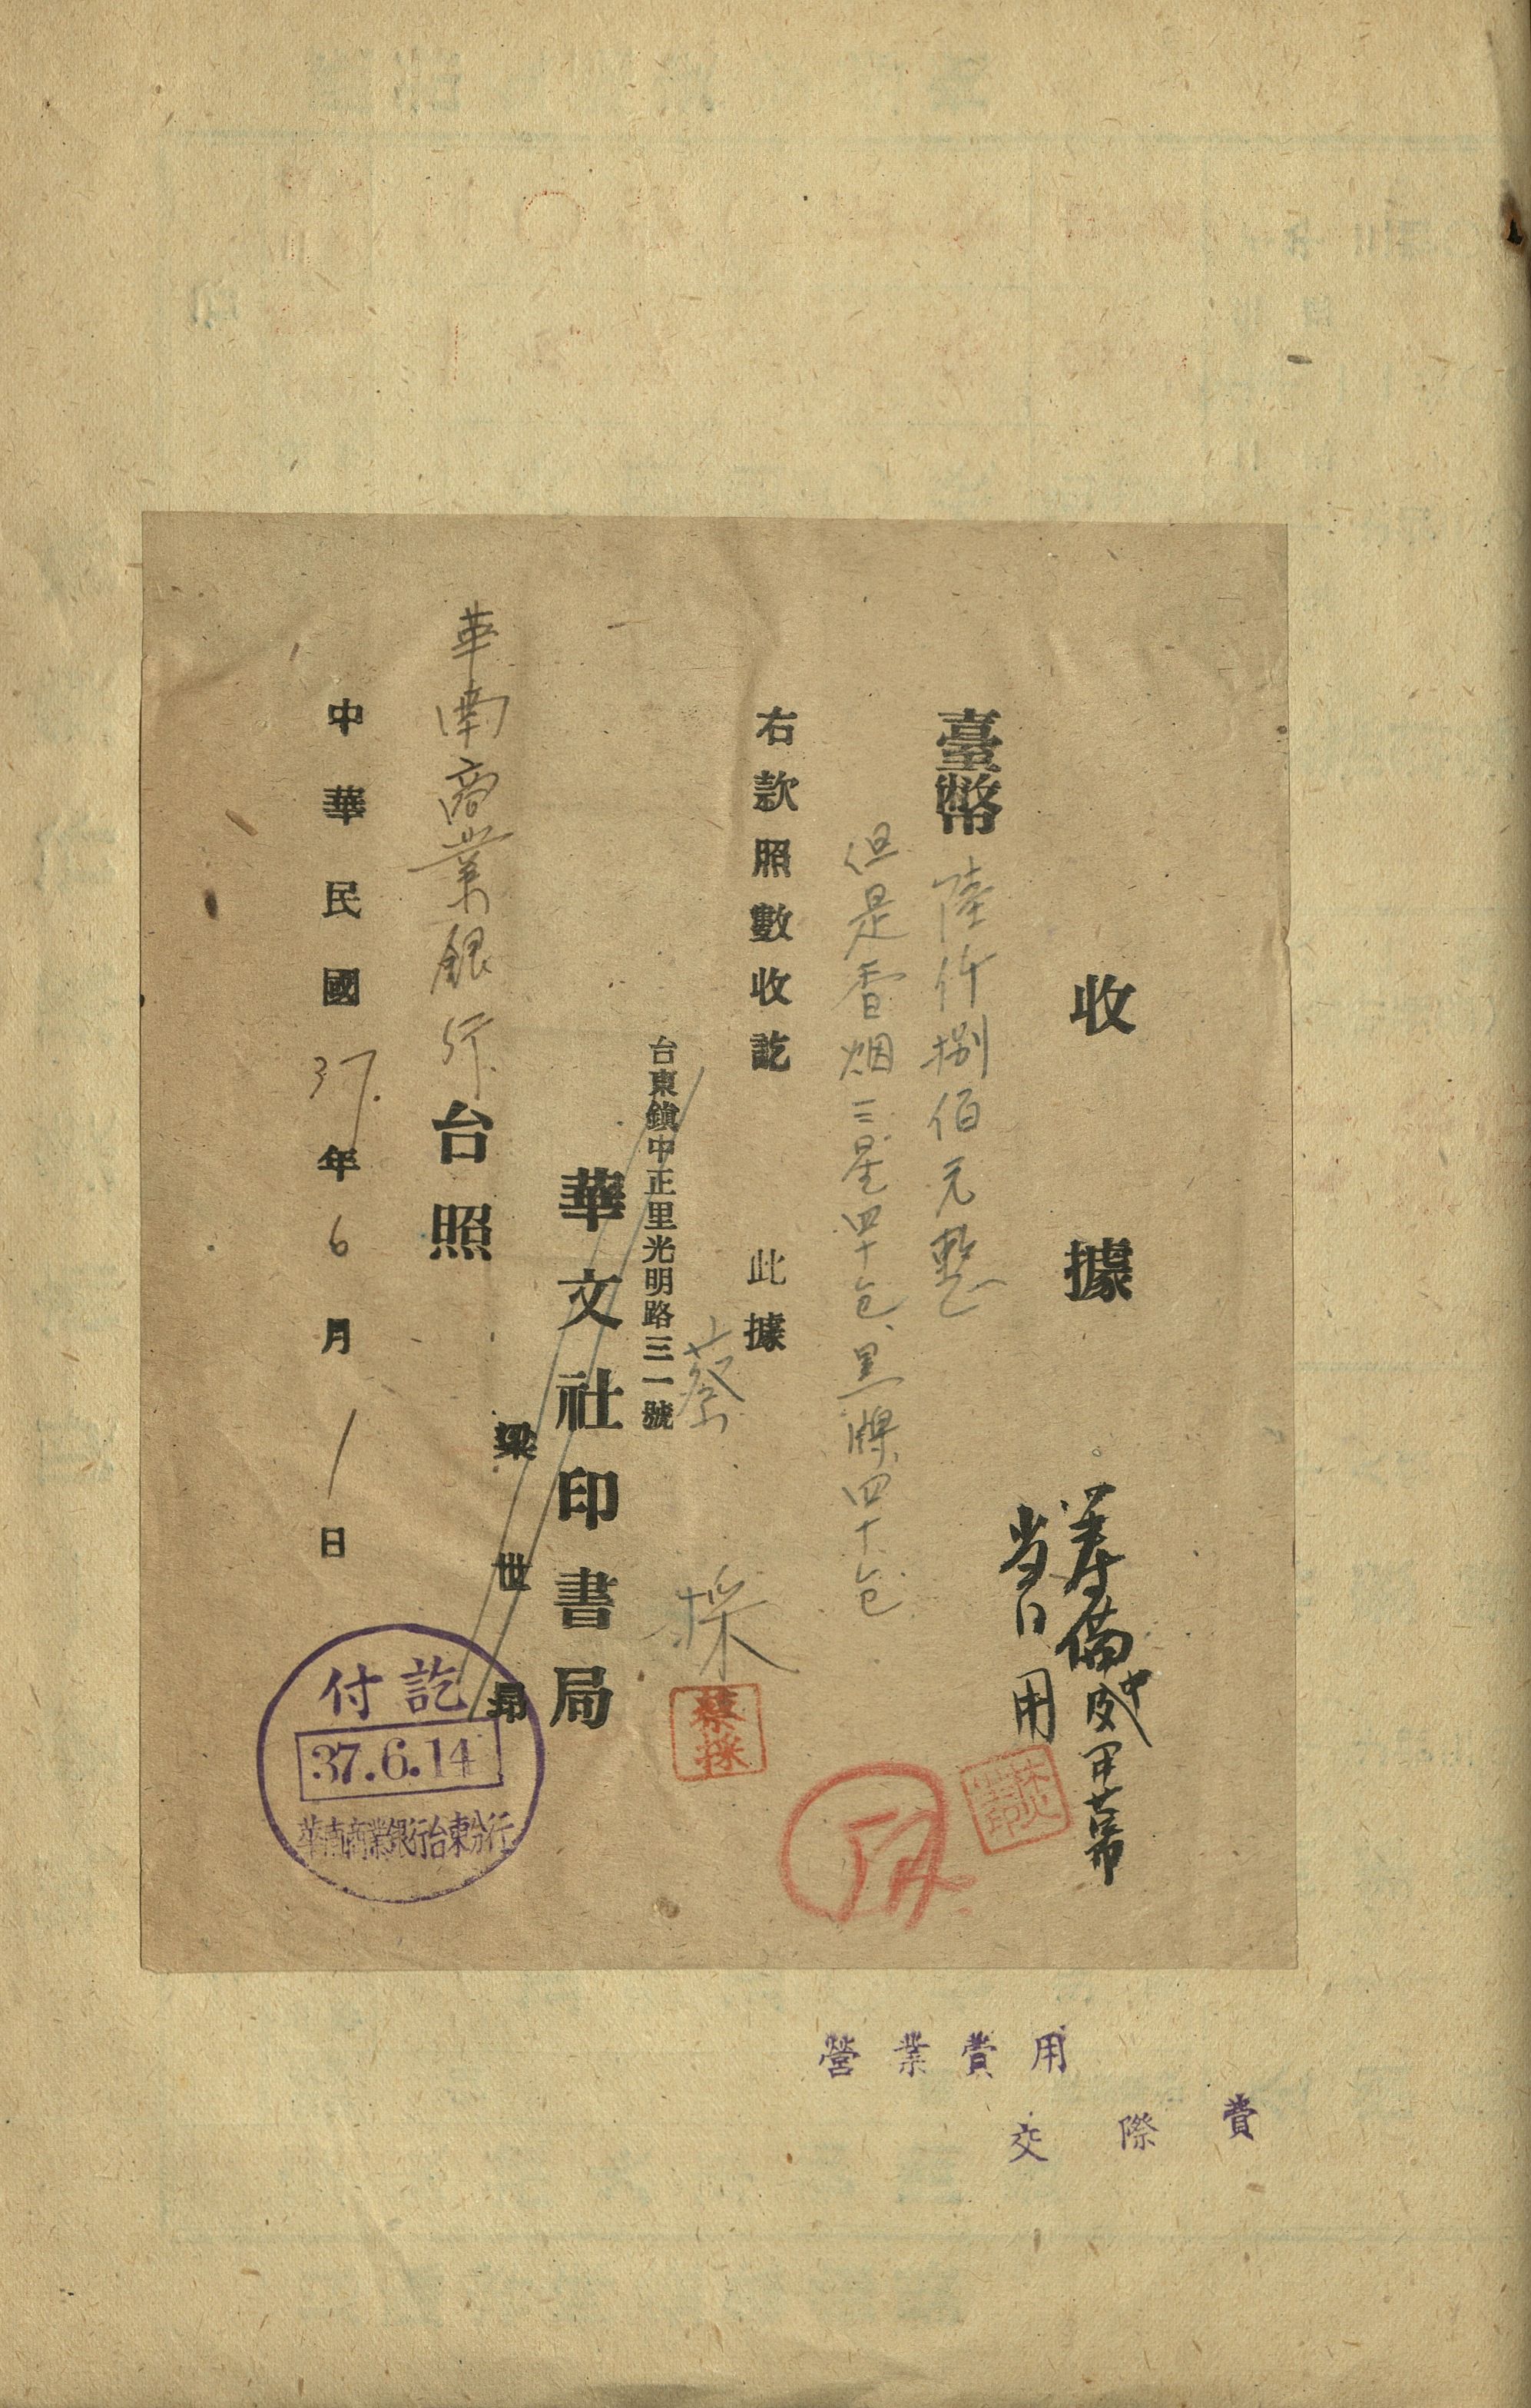 收據
籌備中
當日用
臺幣陸仟捌佰元整
但是香烟三星四十包、黑牌四十包
右款照數收訖 此據
蔡採
蔡採
台東鎮中正里光明路三一號
華文社印書局
梁世昻
華南商業銀行台照
中華民國37年6月1日
付訖
37.6.14
華南商業銀行台東分行
營業費用
交際費